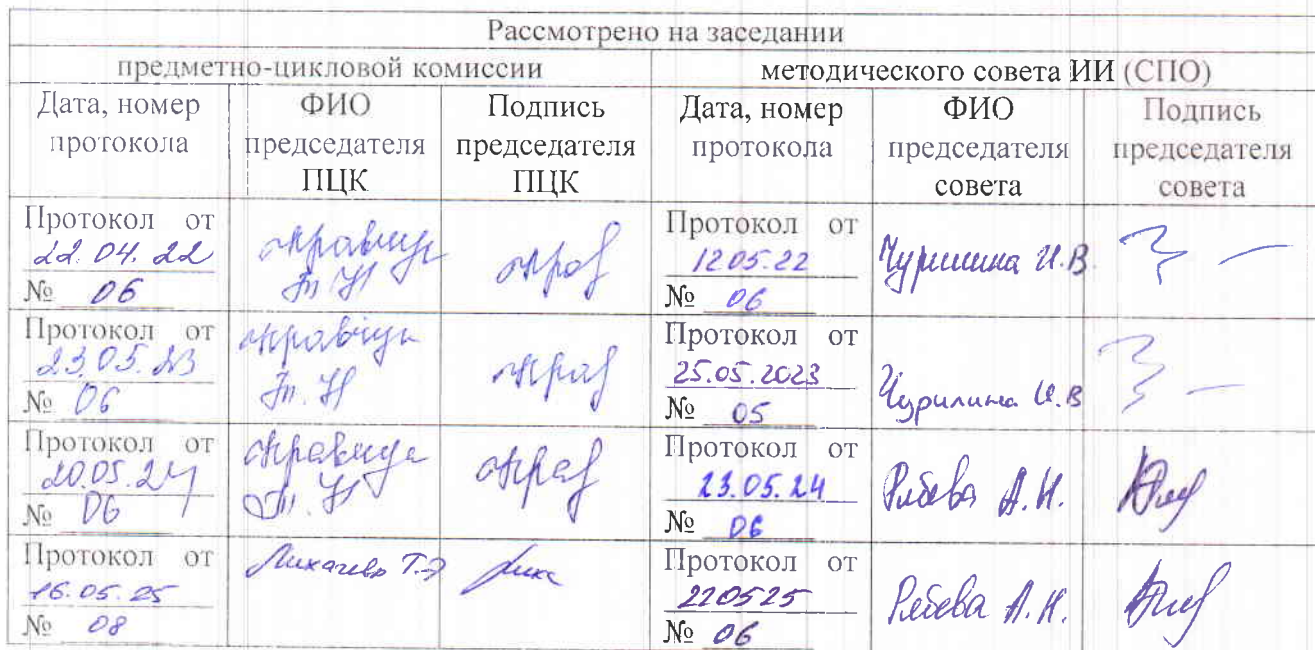 Рассмотрено на заседании
предметно-цикловой комиссии методического совета ИИ (СПО)
Дата, номер протокола ФИО председателя ПЦК Подпись председателя ПЦК Дата, номер протокола ФИО председателя совета Подпись председателя совета
Протокол от
22.04.22
№ 06
Т Н
Протокол от
12.05.22
№ 06
Чурилина И.В.
Протокол от
23.05.23
№ 06
Т. Н
Протокол от
25.05.2023
№ 05
Чурилина И.В
Протокол от
20.05.24
№ 06
Т. Н
Протокол от
23.05.24
№ 06
А.Н.
Протокол от
16.05.25
№ 08
Лихачева Т.Э
Протокол от
220525
№ 06
А.Н.